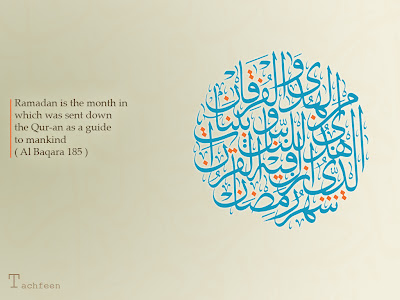 Ramadan is the month in
which was sent down
the Qur-an as a guide
to mankind
( Al Baqara 185 )
شَهْرُ رَمَضَانَ
الَّذِي أُنزِلَ فِيهِ الْقُرْآنُ
هُدًى لِّلنَّاسِ وَبَيِّنَاتٍ
مِّنَ الْهُدَىٰ وَالْفُرْقَانِ
Tachfeen